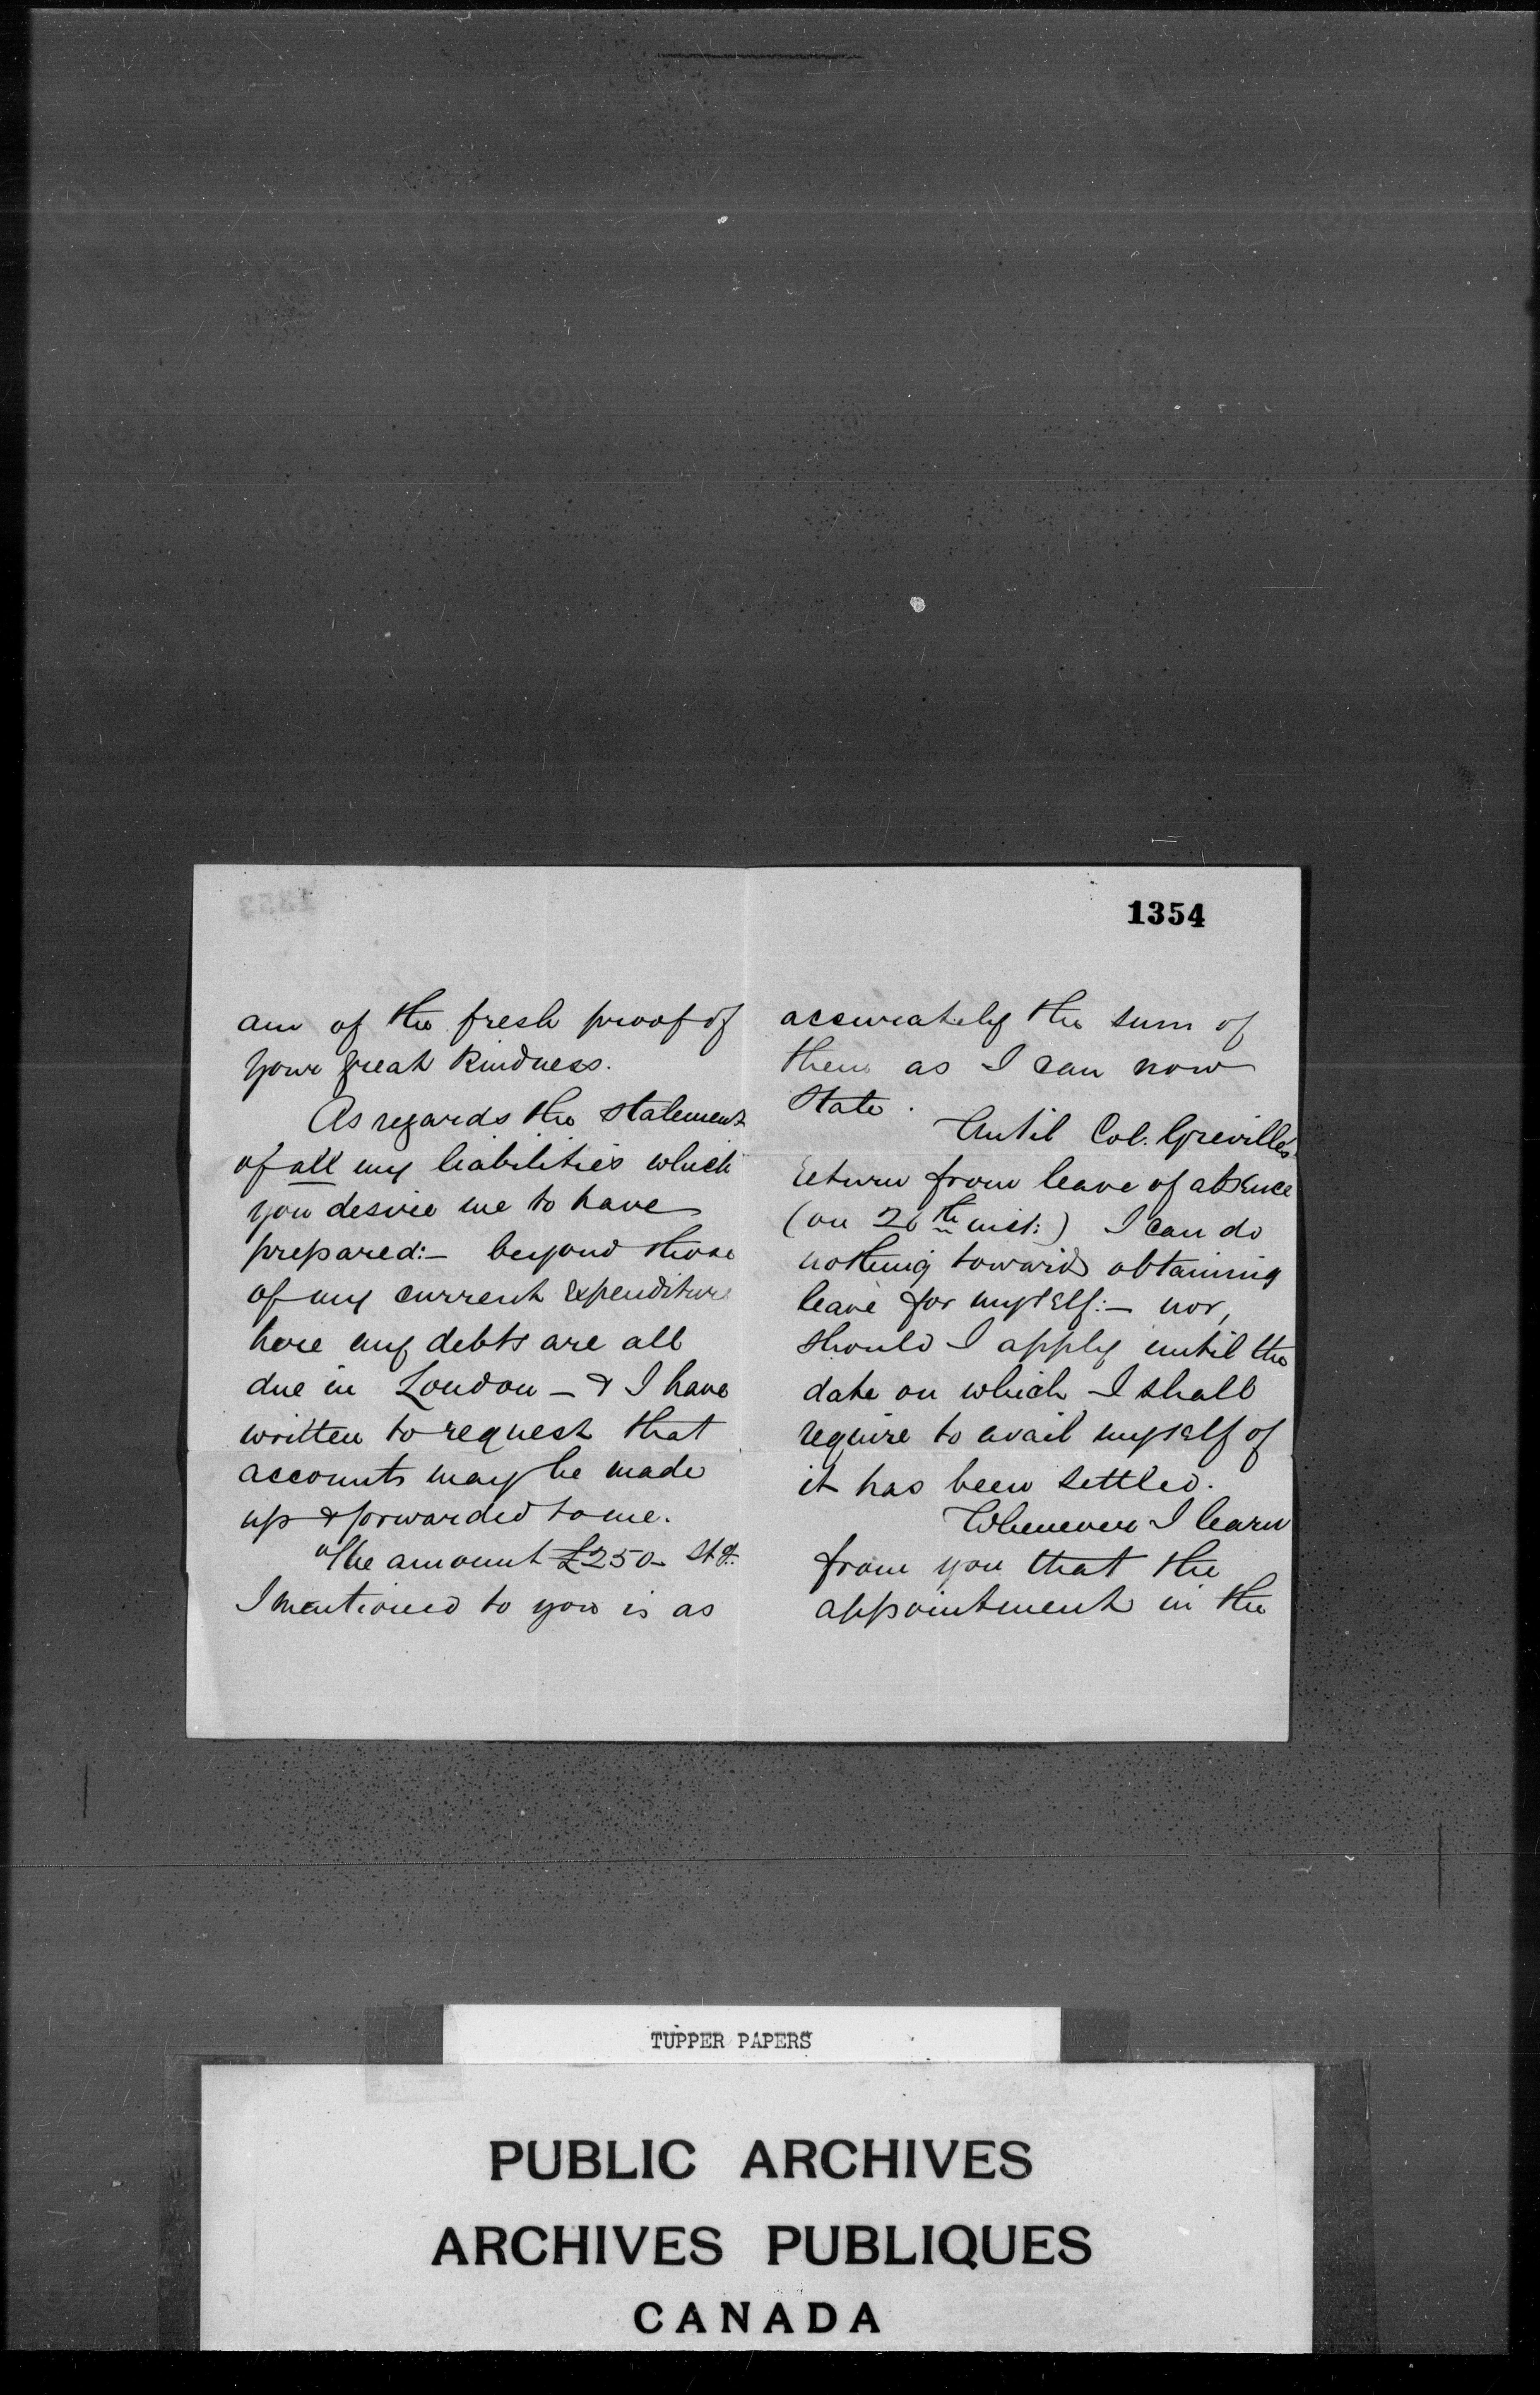 1354
am of the fresh proof of
your great kindness.
As regards the statement
of all my liabilities which
you desire me to have
prepared:– beyond those
of my current expenditure
here my debts are all
due in London – & I have
written to request that
accounts may be made
up & forwarded to me.
The amount £250– Stg:
I mentioned to you is as
accurately the sum of
them as I can now
state.
Until Col. Greville's
return from leave of absence
(on 26th inst:) I can do
nothing towards obtaining
leave for myself:– nor,
should I apply until the
date on which I shall
require to avail myself of
it has been settled.
Whenever I learn
from you that the
appointment in the
TUPPER PAPERS
PUBLIC ARCHIVES
ARCHIVES PUBLIQUES
CANADA